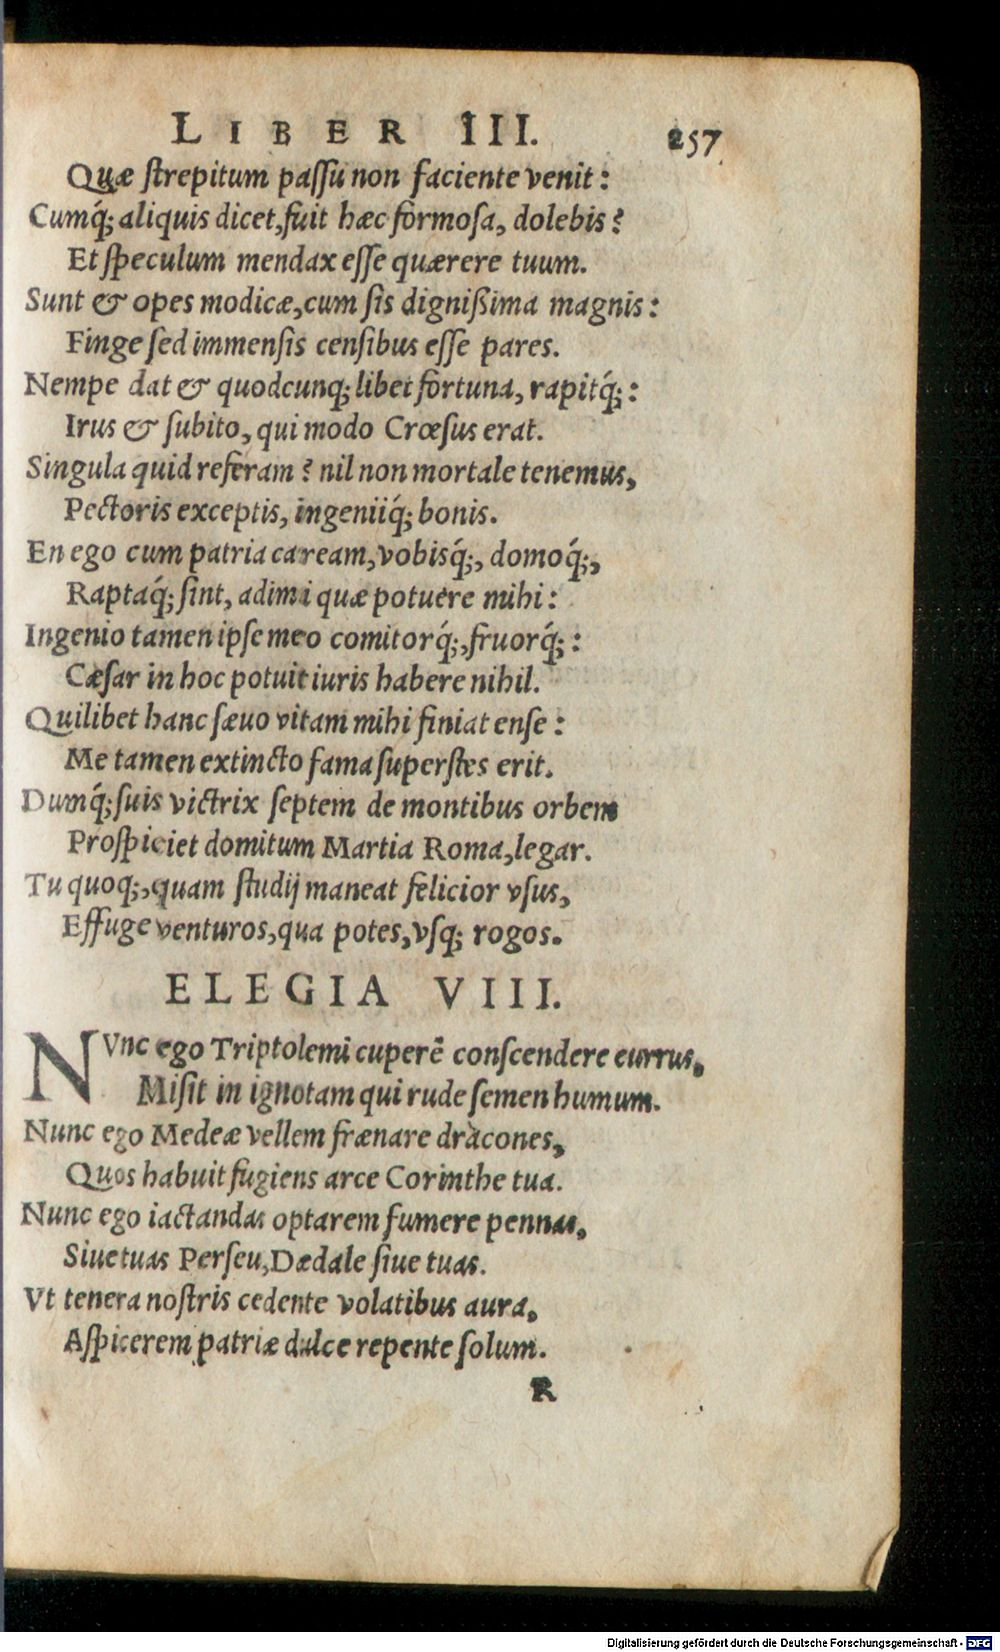 LIBER III. 257
Quæ ſtrepitum paſſu non faciente venit:
Cumq́; aliquis dicet, fuit hæc formoſa, dolebis?
Et ſpeculum mendax eſſe quærere tuum.
Sunt & opes modicæ, cum ſis dignißima magnis:
Finge ſed immenſis cenſibus eſſe pares.
Nempe dat & quodcunq; libet fortuna, rapitq́;:
Irus & ſubito, qui modo Crœſus erat.
Singula quid referam? nil non mortale tenemus,
Pectoris exceptis, ingeniiq́; bonis.
En ego cum patria caream, vobisq́;, domoq́;,
Raptaq́; ſint, adimi quæ potuêre mihi:
Ingenio tamen ipſe meo comitorq́;, fruorq́;:
Cæſar in hoc potuit iuris habere nihil.
Quilibet hanc ſæuo vitam mihi finiat enſe:
Me tamen extincto fama ſuperſtes erit.
Dumq́; ſuis victrix ſeptem de montibus orbem
Proſpiciet domitum Martia Roma, legar.
Tu quoq;, quam ſtudij maneat felicior vſus,
Effuge venturos, qua potes, vſq; rogos.
ELEGIA VIII.
NVnc ego Triptolemi cuperē conſcendere currus,
Miſit in ignotam qui rude ſemen humum.
Nunc ego Medeæ vellem frænare dracones,
Quos habuit fugiens arce Corinthe tua.
Nunc ego iactandas optarem ſumere pennas,
Siue tuas Perſeu, Dædale ſiue tuas.
Vt tenera noſtris cedente volatibus aura,
Aſpicerem patriæ dulce repente ſolum.
R
Digitalisierung gefördert durch die Deutsche Forschungsgemeinschaft - DFG